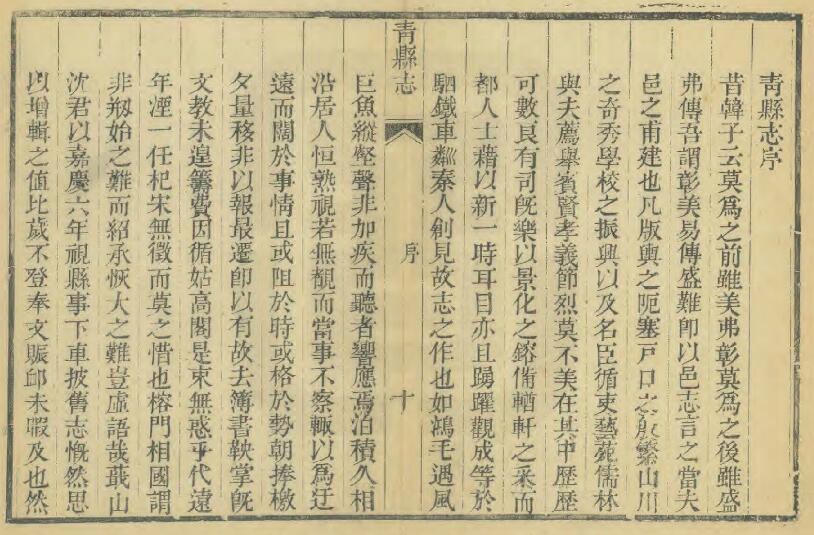 青縣志序
昔韓子云莫爲之前雖美弗彰莫爲之後雖盛
弗傳吾謂彰美易傳盛難卽以邑志言之當夫
邑之甫建也凡版輿之阨塞戸口之殷繁山川
之奇秀學校之振興以及名臣循吏藝苑儒林
與夫薦舉賓賢孝義節烈莫不美在其中歷歷
可數良有司旣樂以景化之鎔備輶軒之采而
都人士藉以新一時耳目亦且踴躍觀成等於
駟鐵車鄰秦人創見故志之作也如鴻毛遇風
青縣志
序
十
巨魚縱壑聲非加疾而聽者響應焉洎積久相
沿居人恒熟視若無覩而當事不察輒以爲迂
遠而闊於事情且或阻於時或格於勢朝捧檄
夕量移非以報最遷卽以有故去簿書鞅掌旣
文教未遑籌費因循姑高閣是束無惑乎代遠
年湮一任杞宋無徵而莫之惜也榕門相國謂
非刱始之難而紹承恢大之難豈虛語哉蕺山
沈君以嘉慶六年視縣事下車披舊志慨然思
以增輯之值比歲不登奉文賑邮未暇及也然